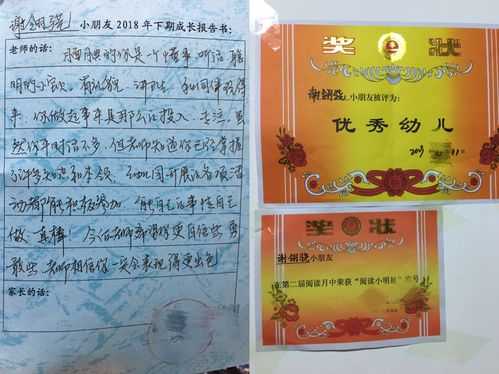 小朋友2018年下期成长报告书:
老师的话: 腼腆的你是一个懂事、听话、聪
明的小家伙。有礼貌,讲卫生,和同伴相处得
来,你做起事来是那么的投入、专注,虽
然你平时话不多,但老师知道你已经掌握
了许多知识和本领,幼儿园开展的各项活
动都能积极参加,能自己的事情自己
做,真棒!今后老师希望你更自信些,勇
敢些,老师相信你一定会表现得更出色
家长的话:
奖状
小朋友被评为:
优秀幼儿
奖状
小朋友
在第二届阅读月中荣获“阅读小明星”称号